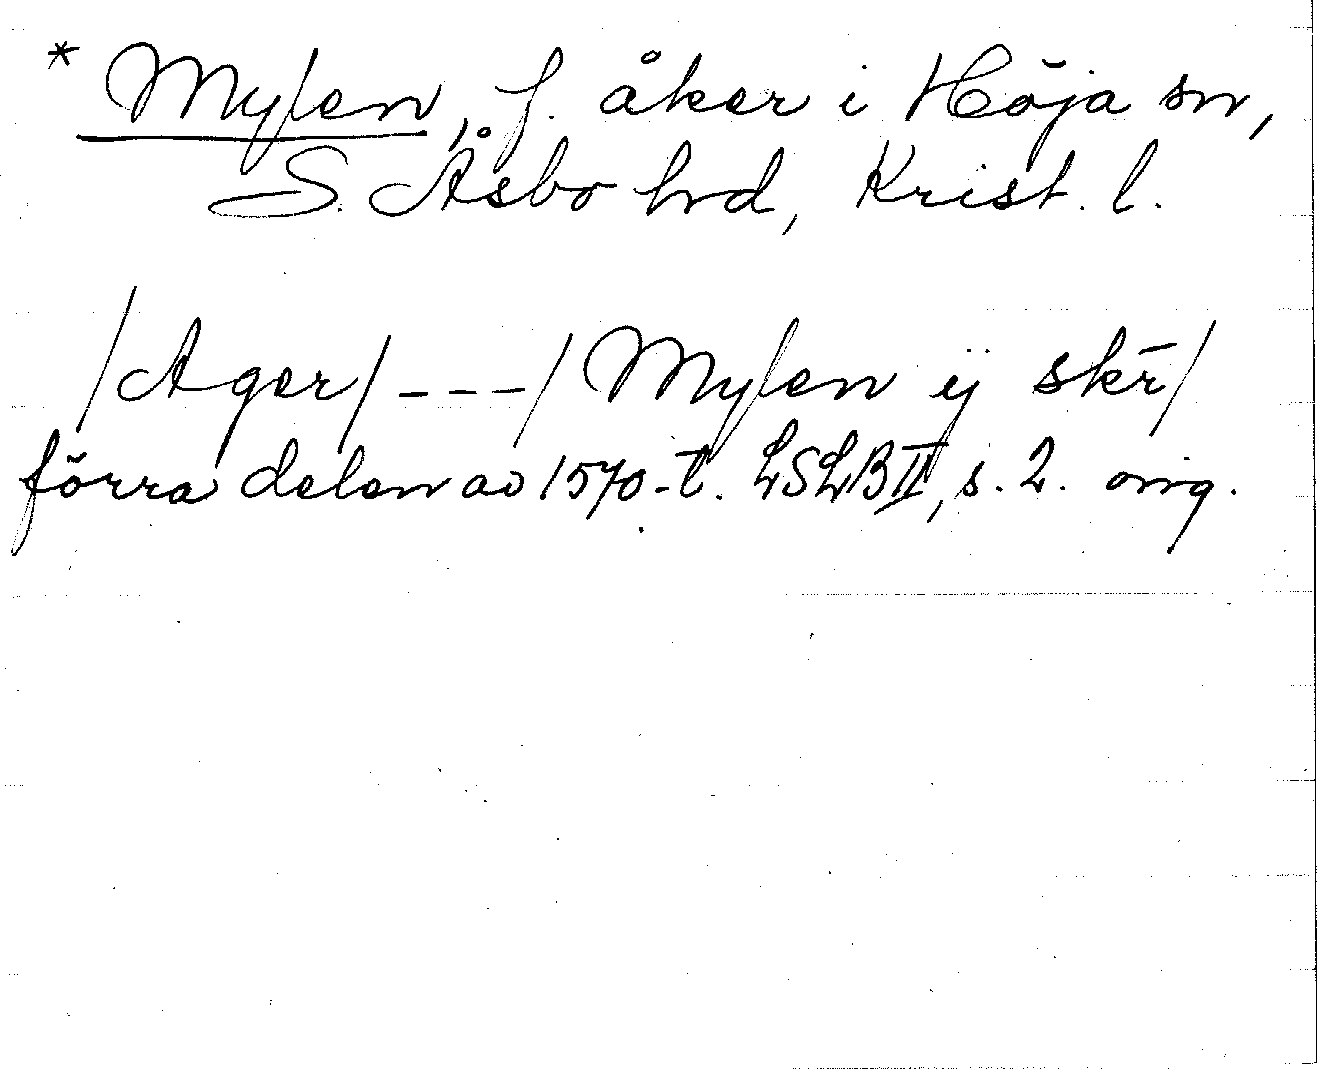 * Mylen, f. åker i Höja sn,
S. Åsbo hrd, Krist. l.
/Ager/ - - - / Mylen ij skr̄/
förra delen av 1570-t. LSLB II, s. 2. orig.